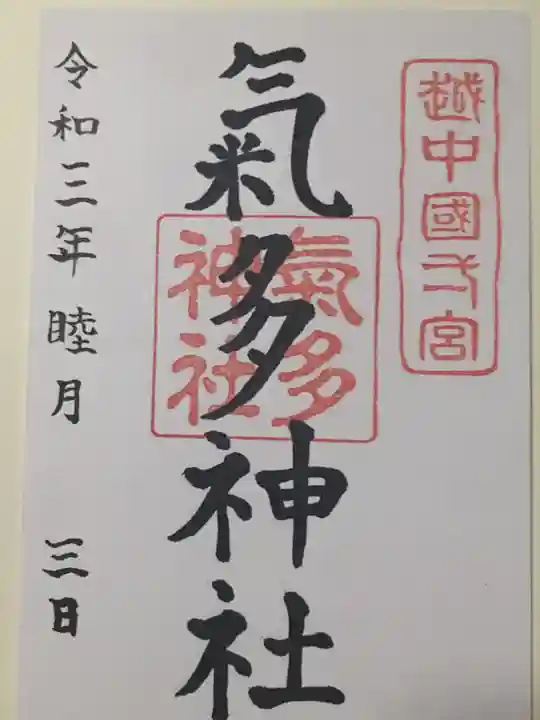 越中國弌宮
氣多神社
氣多
神社
令和三年 睦月 三日